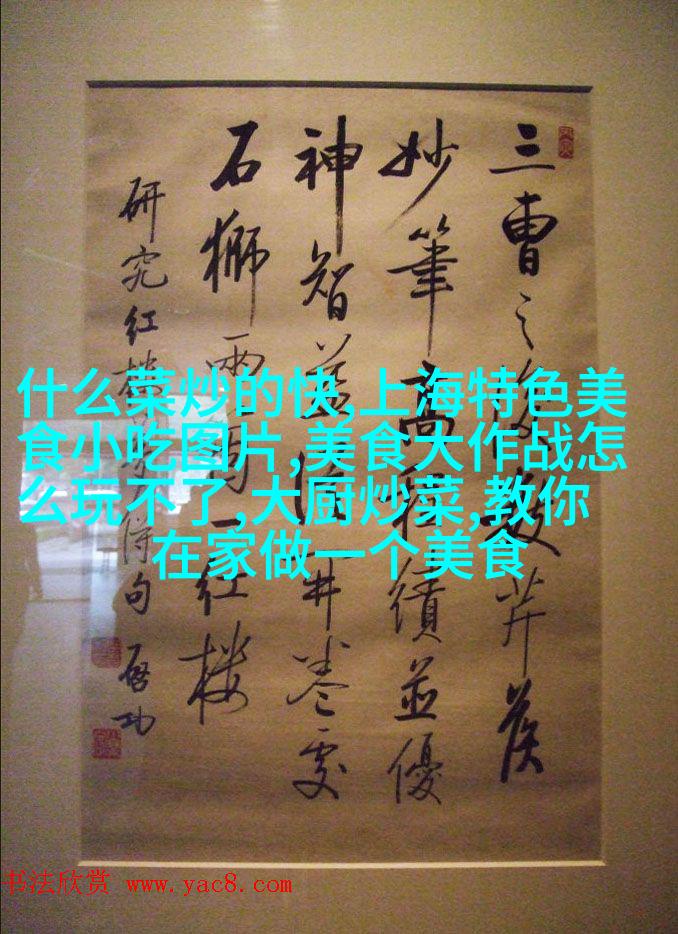 三曹之後數芹侯
妙筆高程績並優
神智益從開卷處
石獅兩个一红楼
研究红楼夢得句 启功
什么菜炒的快,上海特色美
食小吃图片,美食大作战怎
么玩不了,大厨炒菜,教你
在家做一个美食
书法欣赏 www.yac8.com